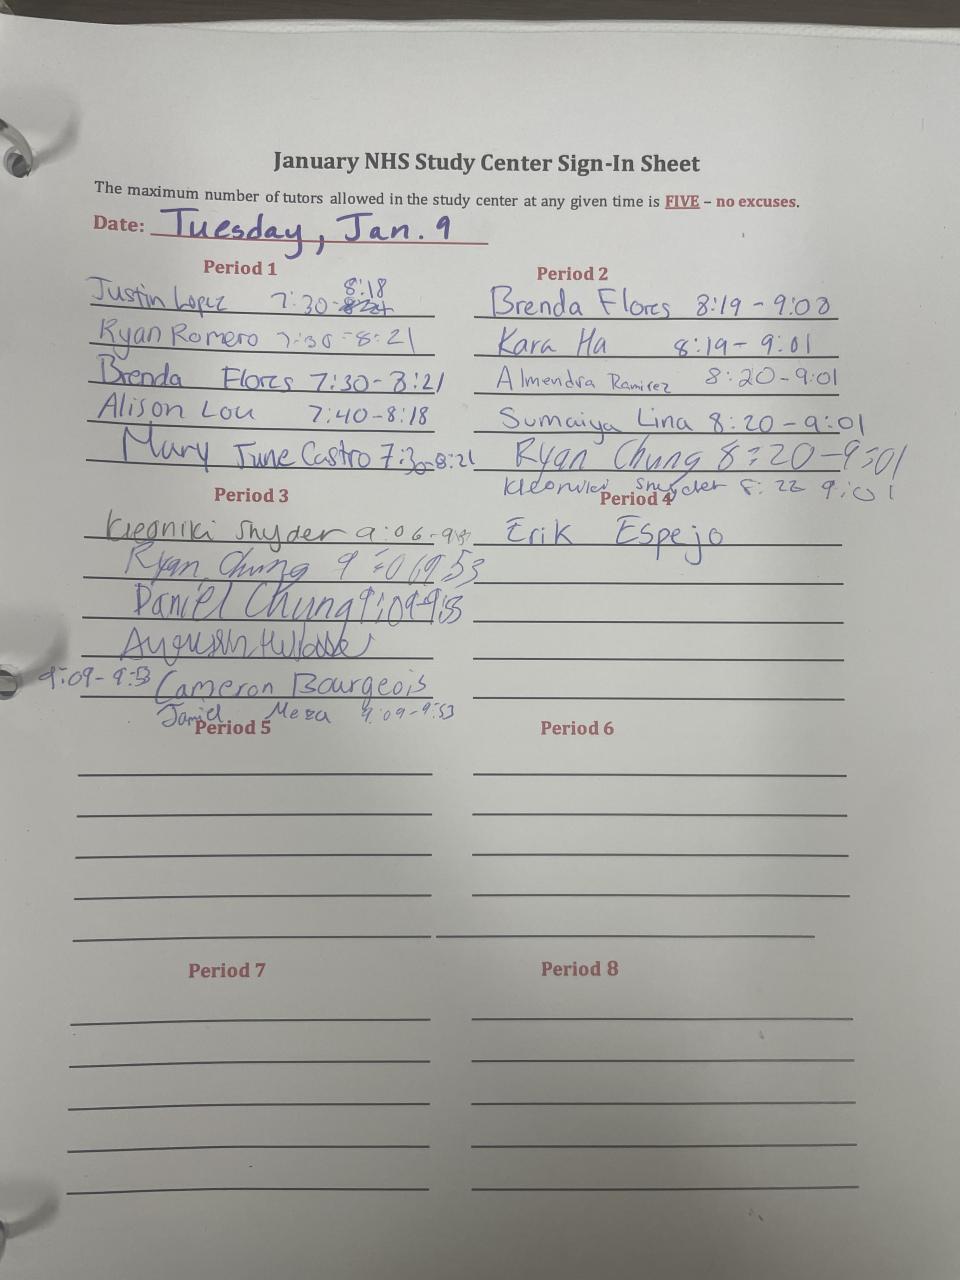 January NHS Study Center Sign-In Sheet
The maximum number of tutors allowed in the study center at any given time is FIVE – no excuses.
Date: Tuesday, Jan. 9
Period 1
8:18
Justin Lopez 7:30-
Ryan Romero 7:30-8:21
Brenda Flores 7:30-8:21
Alison Lou 7:40-8:18
Mary June Castro 7:30-8:21
Period 2
Brenda Flores 8:19-9:00
Kara Ha 8:19-9:01
Almendra Ramirez 8:20-9:01
Sumaiya Lina 8:20-9:01
Ryan Chung 8:20-9:01
Kleoniki Snyder 8:22 9:01
Period 3
Kleoniki Snyder 9:06-
Ryan Chung 9:06 9:53
Daniel Chung 9:09-
9:09-9:53 Cameron Bourgeois
Meza 9:09-9:53
Period 4
Erik Espejo
Period 5
Period 6
Period 7
Period 8